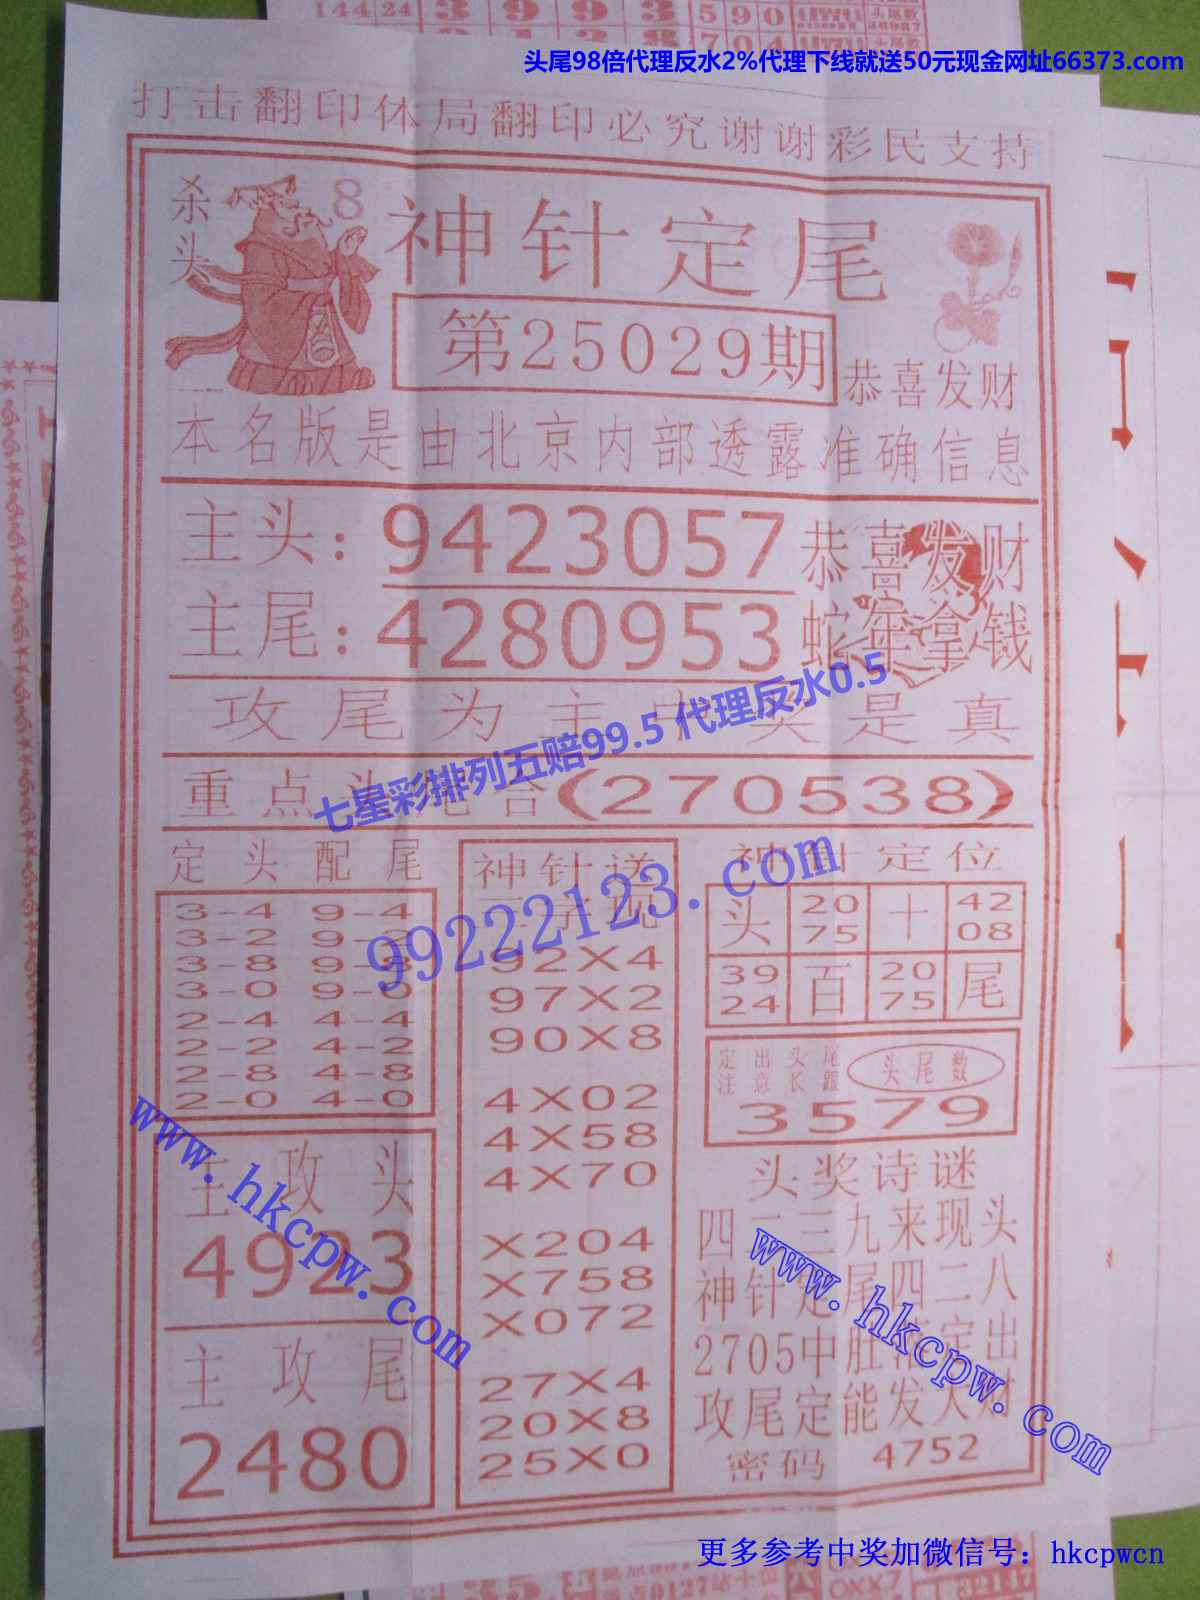 144 24 3 9 9 3 5 9 0
头尾98倍代理反水2%代理下线就送50元现金网址66373.com
打击翻印体局翻印必究谢谢彩民支持
杀头 8
神针定尾
第25029期
恭喜发财
本名版是由北京内部透露准确信息
主头:9423057 恭喜发财
主尾:4280953 蛇年拿钱
攻尾为主中奖是真
七星彩排列五赔99.5 代理反水0.5
重点 合(270538)
定头配尾
3-4 9-4
3-2 9-2
3-8 9-8
3-0 9-0
2-4 4-4
2-2 4-2
2-8 4-8
2-0 4-0
主攻头
4923
主攻尾
2480
神针送
92X4
97X2
90X8
4X02
4X58
4X70
X204
X758
X072
27X4
20X8
25X0
神针定位
头 20 75 十 42 08
39 24 百 20 75 尾
定出头尾
注意长跟
头尾数
3579
头奖诗谜
四二三九来现头
神针定尾四二八
2705中肚 定出
攻尾定能发大财
密码 4752
99222123.com
www.hkcpw.com
www.hkcpw.com
更多参考中奖加微信号：hkcpwcn